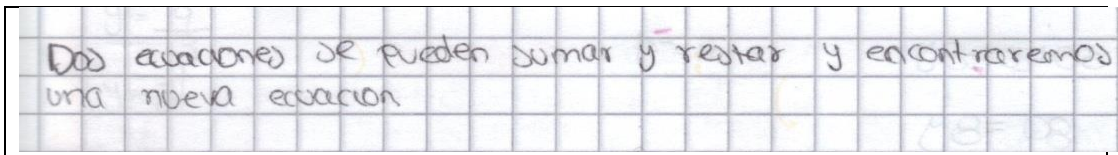 Dos ecuaciones se pueden sumar y restar y encontraremos
una nueva ecuacion